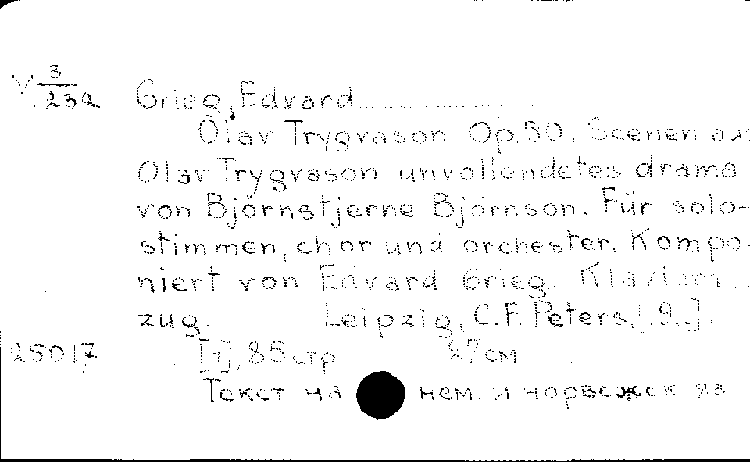 V 3/23a Grieg, Edvard
Olav Trygvason Op.50. Scenen aus
Olav Trygvason unvollendetes drama
von Björnstjerne Björnson. Für solo-
stimmen, chor und orchester. Kompo-
niert von Edvard Grieg. Klavier
zug. Leipzig, C.F. Peters, [.9..].
25017 [1], 85 стр 27 см
Текст на нем. и норвежск яз